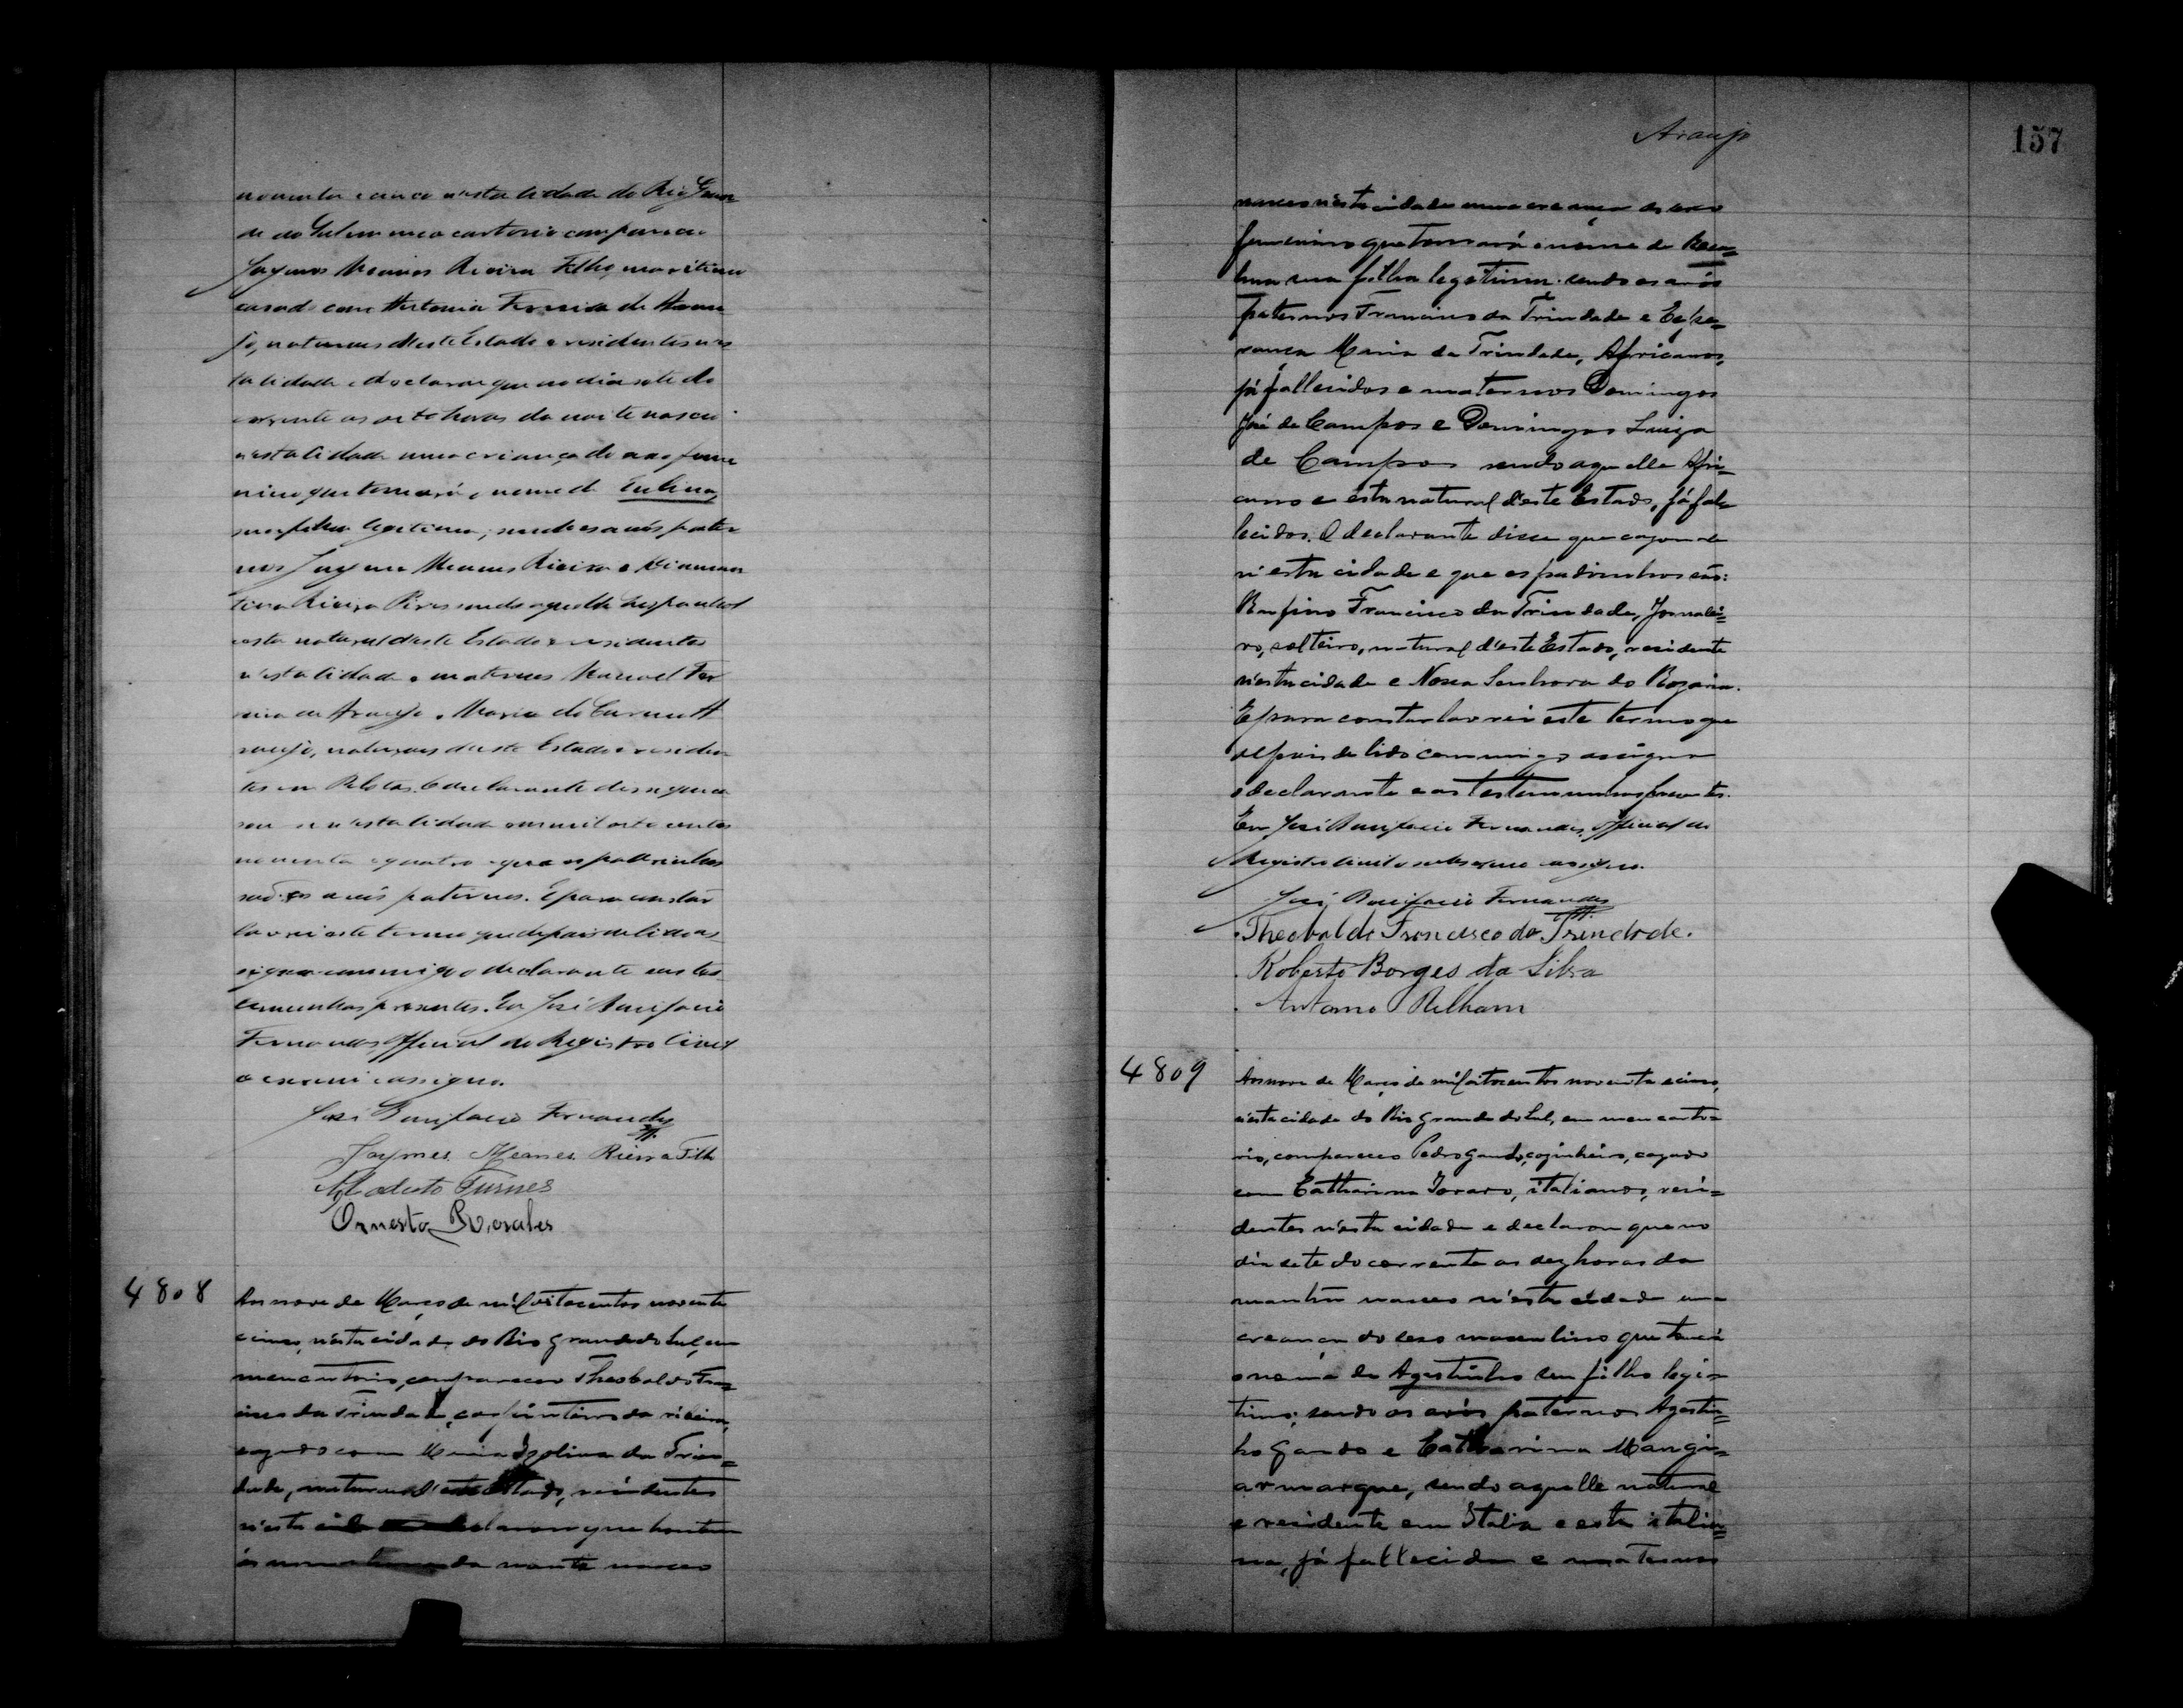 noventa e cinco n'esta Cidade do Rio Gran
de do Sul em meu cartorio compareceu
Jaymes Meanes Rieira Filho, maritimo
casado com Antonia Ferreira de Arau
jo, naturaes d'este Estado e residentes n'es
ta Cidade e declarou que no dia sete do
corrente as oito horas da noite nasceu
n'esta Cidade uma criança do sexo femi
nino que tomará o nome de
sua filha legitima; sendo os avós pater
nos Jayme Meanes Rieira e
Rieira Pires sendo aquelle Hespanhol
e esta natural d'este Estado e residentes
n'esta Cidade e maternos Manoel Fer
reira de Araujo e Maria do Carmo A
raujo, naturaes d'este Estado e residen
tes em Pelotas. O declarante disse que ca
sou-se n'esta Cidade em mil oito centos
noventa e quatro e que os padrinhos
são: os avós paternos. E para constar
lavrei este termo que depois de lido as
signa commigo o declarante e as tes
temunhas presentes. Eu José Bonifacio
Fernandes, Official do Registro Civil
o escrevi e assigno.
José Bonifacio Fernandes
Jaymes Meanes Rieira Filho
Modesto Furnes
Ornesto Rosales
4808
Aos nove de Março de mil oitocentos noventa
e cinco, n'esta cidade do Rio Grande do Sul, em
meu cartorio, compareceu Theobaldo Fran=
cisco da Trindade, carpinteiro da ribeira,
cazado com Maria Izolina da Trin=
dade, naturaes d'este Estado, residentes
n'esta cidade e declarou que hontem
ás nove horas da noute nasceu
Araujo
157
nasceu n'esta cidade uma creança do sexo
femenino que tomará o nome de
sua filha legitima. sendo os avós
paternos Francisco da Trindade e Espe=
rança Maria da Trindade, Africanos,
já fallecidos e maternos Domingos
José de Campos e Domingas Luiza
de Campos sendo aquelle Afri=
cano e esta natural d'este Estado, já fal=
lecidos. O declarante disse que cazou-se
n'esta cidade e que os padrinhos são:
Rufino Francisco da Trindade, Jornalei=
ro, solteiro, natural d'este Estado, residente
n'esta cidade e Nossa Senhora do Rozario.
E para constar lavrei este termo que
depois de lido commigo assigna
o declarante e as testemunhas presentes.
Eu José Bonifacio Fernandes, Official do
Registro Civil o subscrevo e assigno.
José Bonifacio Fernandes
Theobaldo Francisco da Trindade.
Roberto Borges da Silva
Antonio Pelham
4809
Aos nove de Março de mil oitocentos noventa e cinco,
n'esta cidade do Rio Grande do Sul, em meu carto=
rio, compareceu Pedro Gando, cozinheiro, cazado
com Catharina Toraro, italianos, resi=
dentes n'esta cidade e declarou que no
dia sete do corrente as dez horas da
manhã nasceu n'esta cidade uma
creança do sexo masculino que tomará
o nome de Agostinho seu filho legi=
timo; sendo os avós paternos Agosti=
ho Gando e Catharina Mangi=
armarque, sendo aquelle natural
e residente em Italia e esta italia=
na, já fallecida e maternos